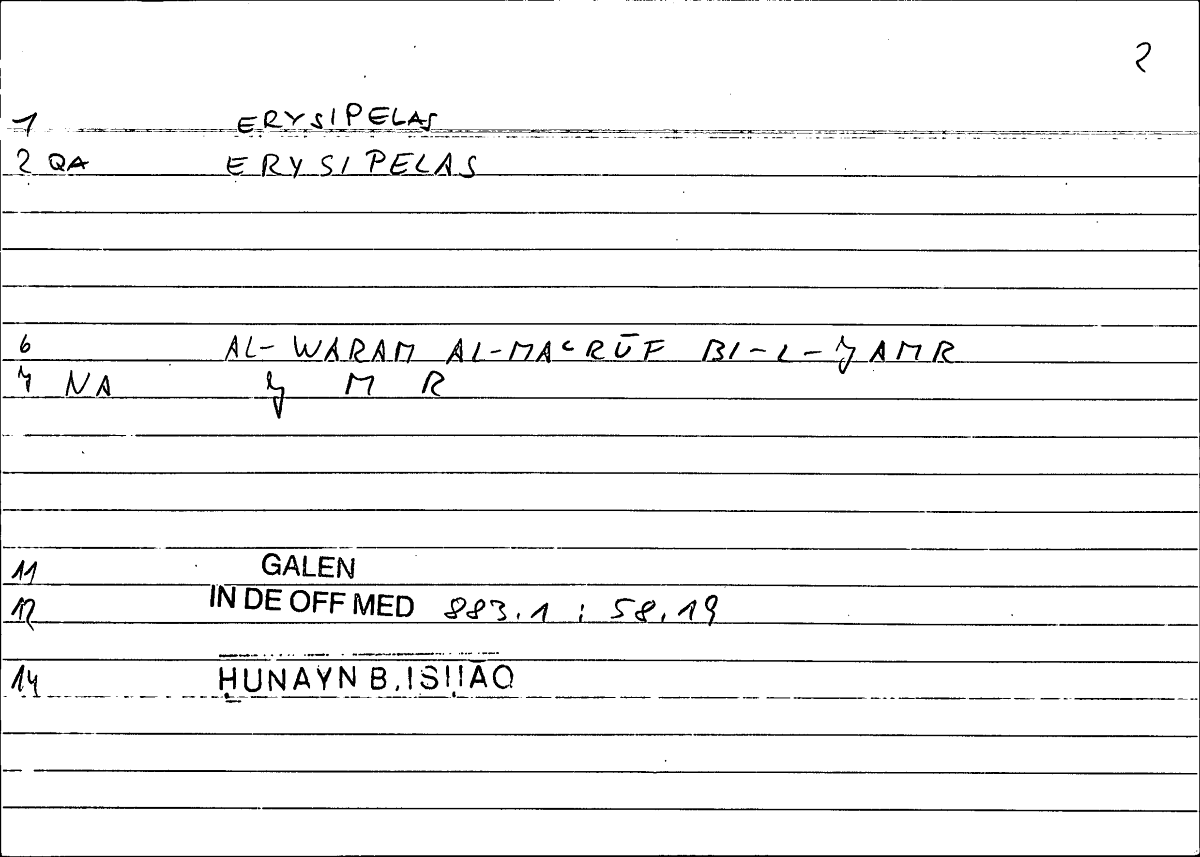 2
1 ERYSIPELAS
2 QA ERYSIPELAS
6 AL-WARAM AL-MAʿRŪF BI-L-JAMR
7 NA J M R
11 GALEN
12 IN DE OFF MED 883.1 : 58.19
14 ḤUNAYN B. ISḤĀQ